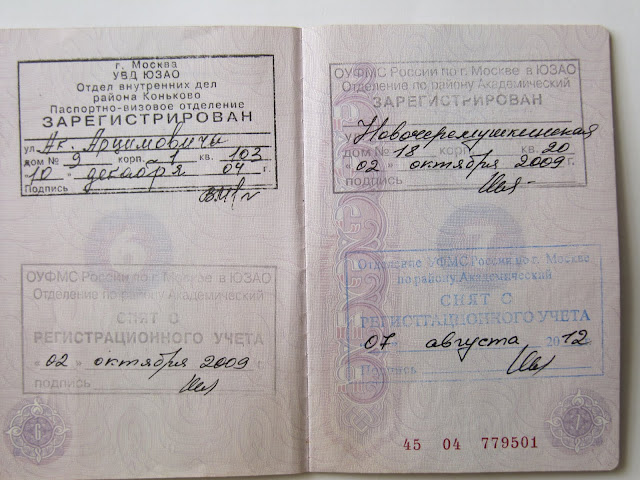 г. Москва
УВД ЮЗАО
Отдел внутренних дел
района Коньково
Паспортно-визовое отделение
ЗАРЕГИСТРИРОВАН
ул. Ак. Арцимовича
дом № 9 корп. 1 кв. 103
"10" декабря 04 г.
Подпись
ОУФМС России по г. Москве в ЮЗАО
Отделению по району Академический
СНЯТ С
РЕГИСТРАЦИОННОГО УЧЕТА
"02" октября 2009 г.
подпись
6
ОУФМС России по г. Москве в ЮЗАО
Отделение по району Академический
ЗАРЕГИСТРИРОВАН
Новочеремушкинская
дом № 18 корп. кв. 20
"02" октября 2009 г.
подпись
7
Отделение УФМС России по г. Москве
по району Академический
СНЯТ С
РЕГИСТРАЦИОННОГО УЧЕТА
07 августа 2012
Подпись
45 04 779501